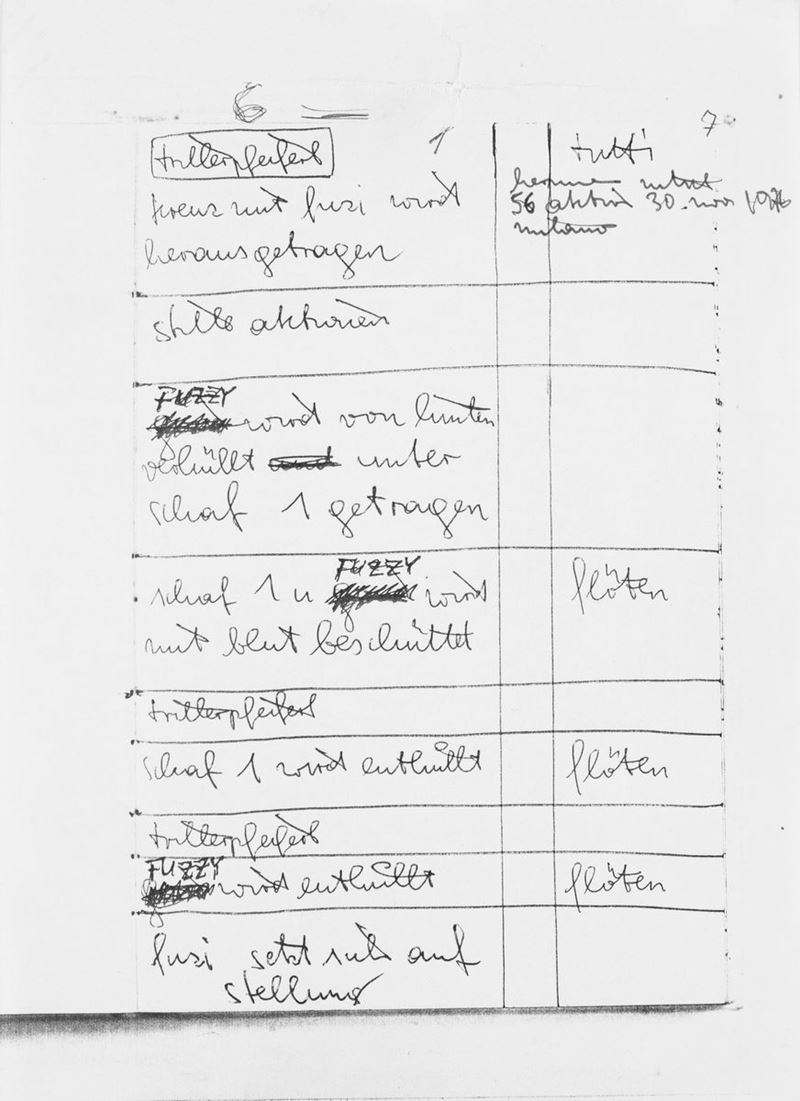 6
7
trillerpfeiferl 1 tutti
kreuz mit fuzi wird
hermann nitsch
56 aktion 30. nov 1976
milano
herausgetragen
stille aktionen
FUZZY
wird von hinten
verhüllt und unter
schaf 1 getragen
FUZZY
schaf 1 u wird flöten
mit blut beschüttet
trillerpfeiferl
schaf 1 wird enthüllt flöten
trillerpfeiferl
FUZZY
wird enthüllt flöten
fuzi setzt sich auf
stellung